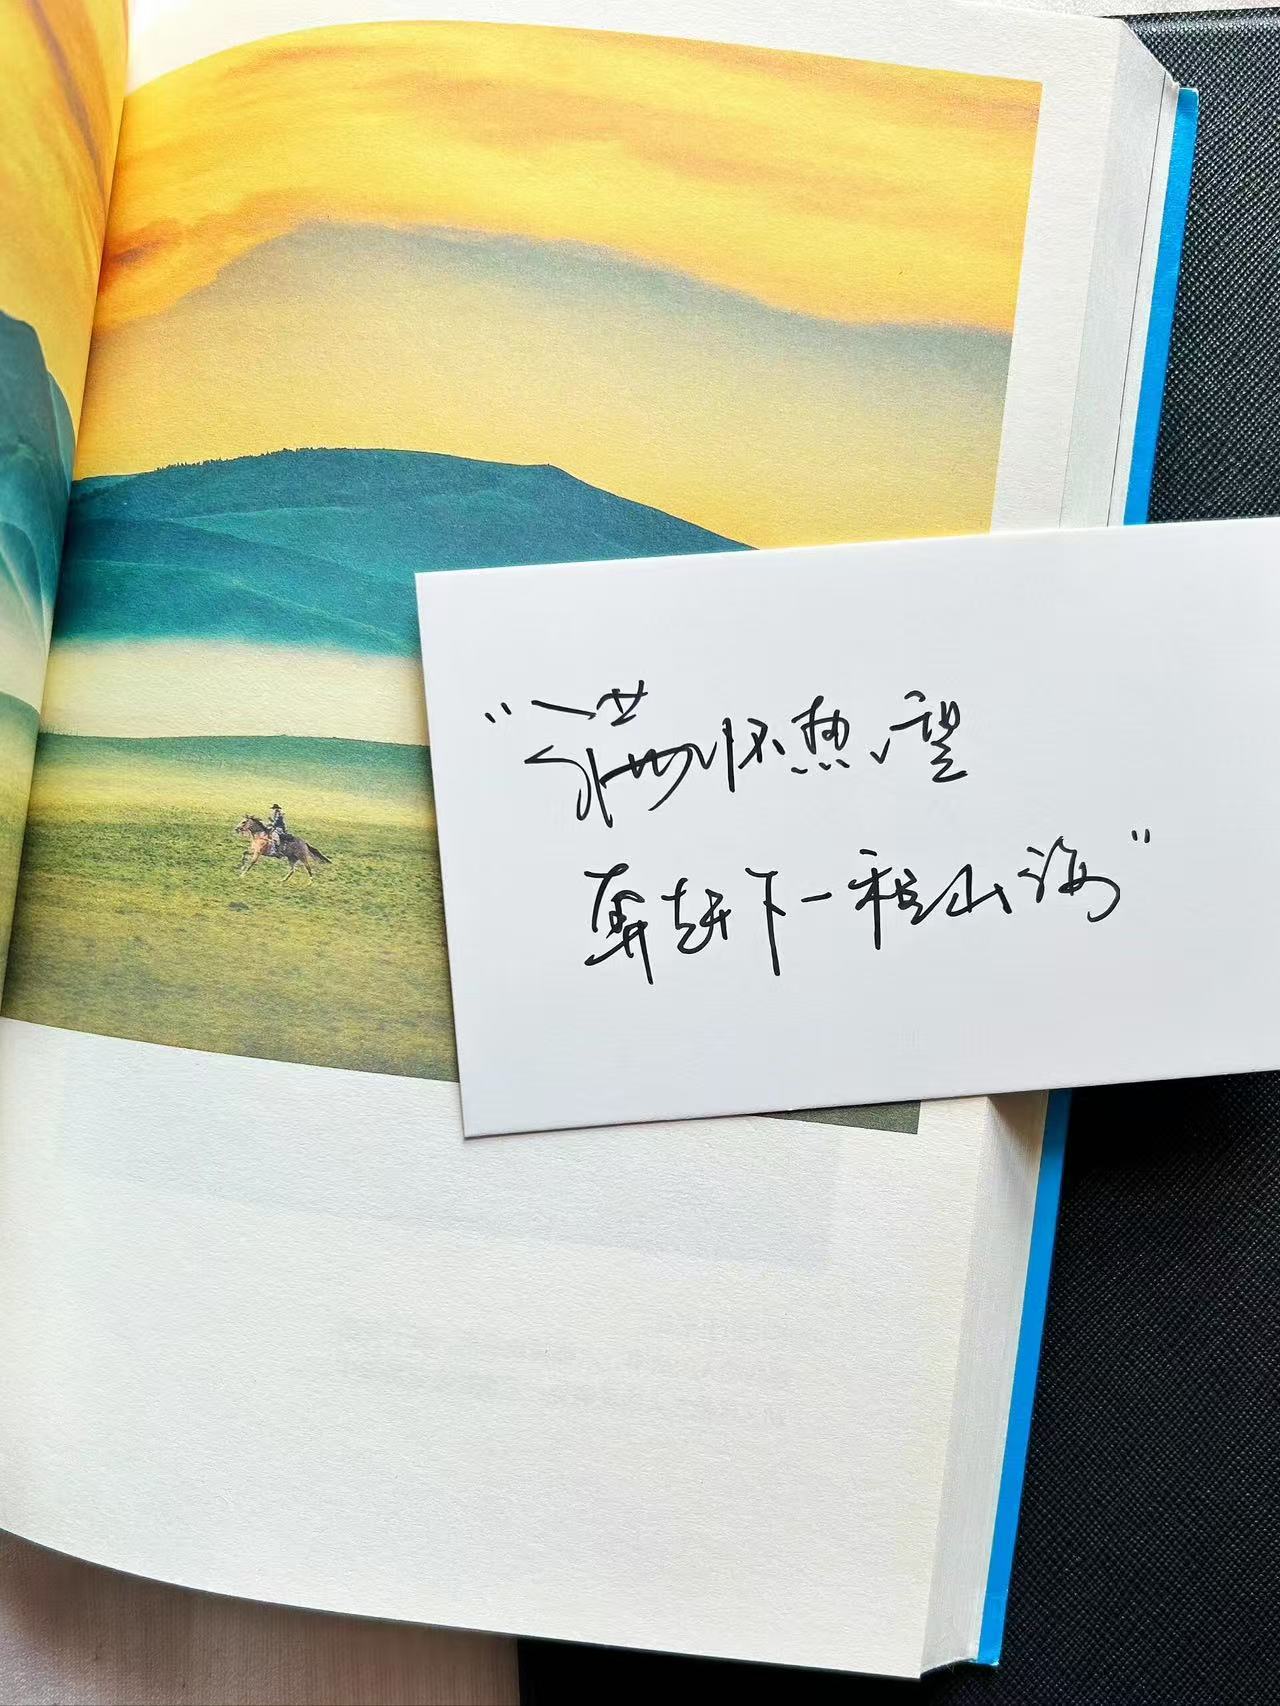 “满怀热望
奔赴下一程山海”